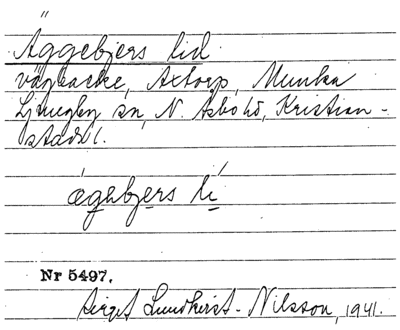 Äggebjers lid
vägbacke, Axtorp, Munka
Ljungby sn, N. Åsbo hd, Kristian-
stads l.
ǽgebjers lí
Nr 5497.
Birgit Lundkvist-Nilsson, 1941.